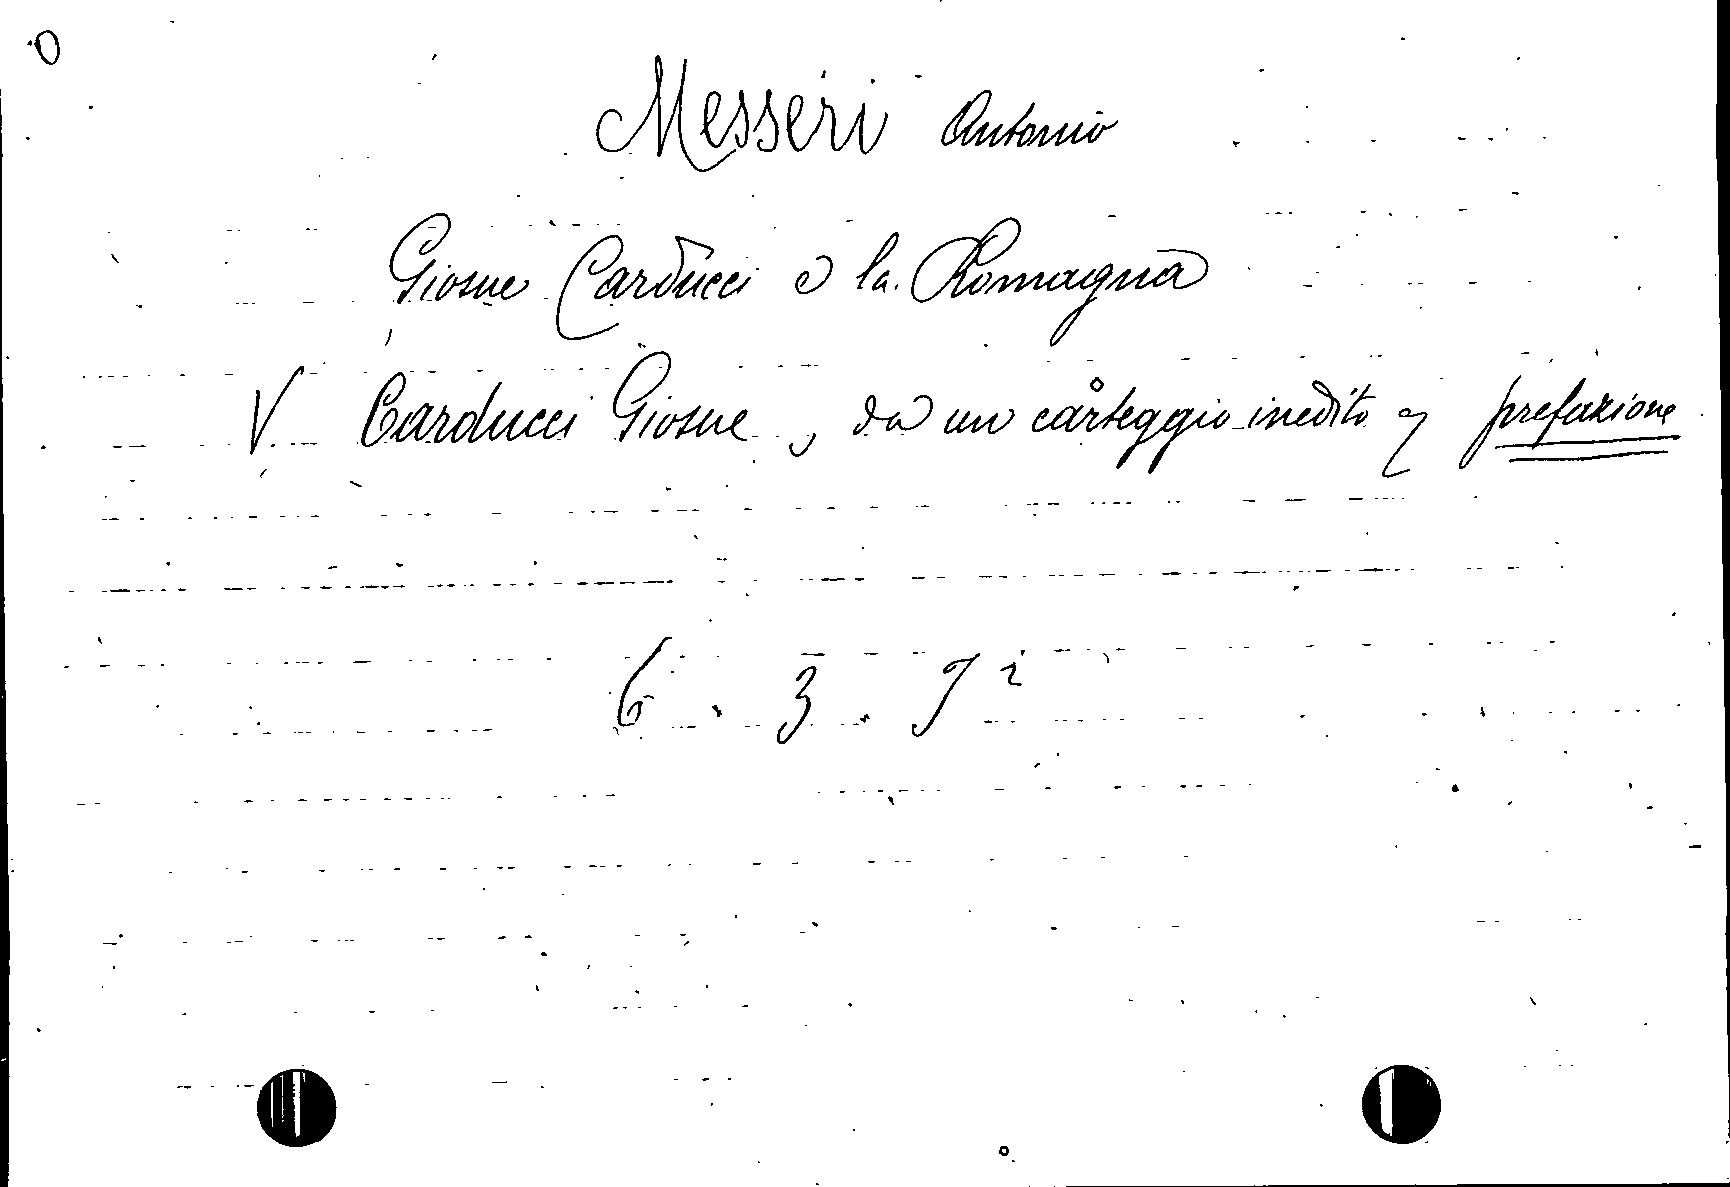 O
Messeri Antonio
Giosue Carducci e la Romagna
V. Carducci Giosue, da un carteggio inedito, prefazione
6. 3. 9²